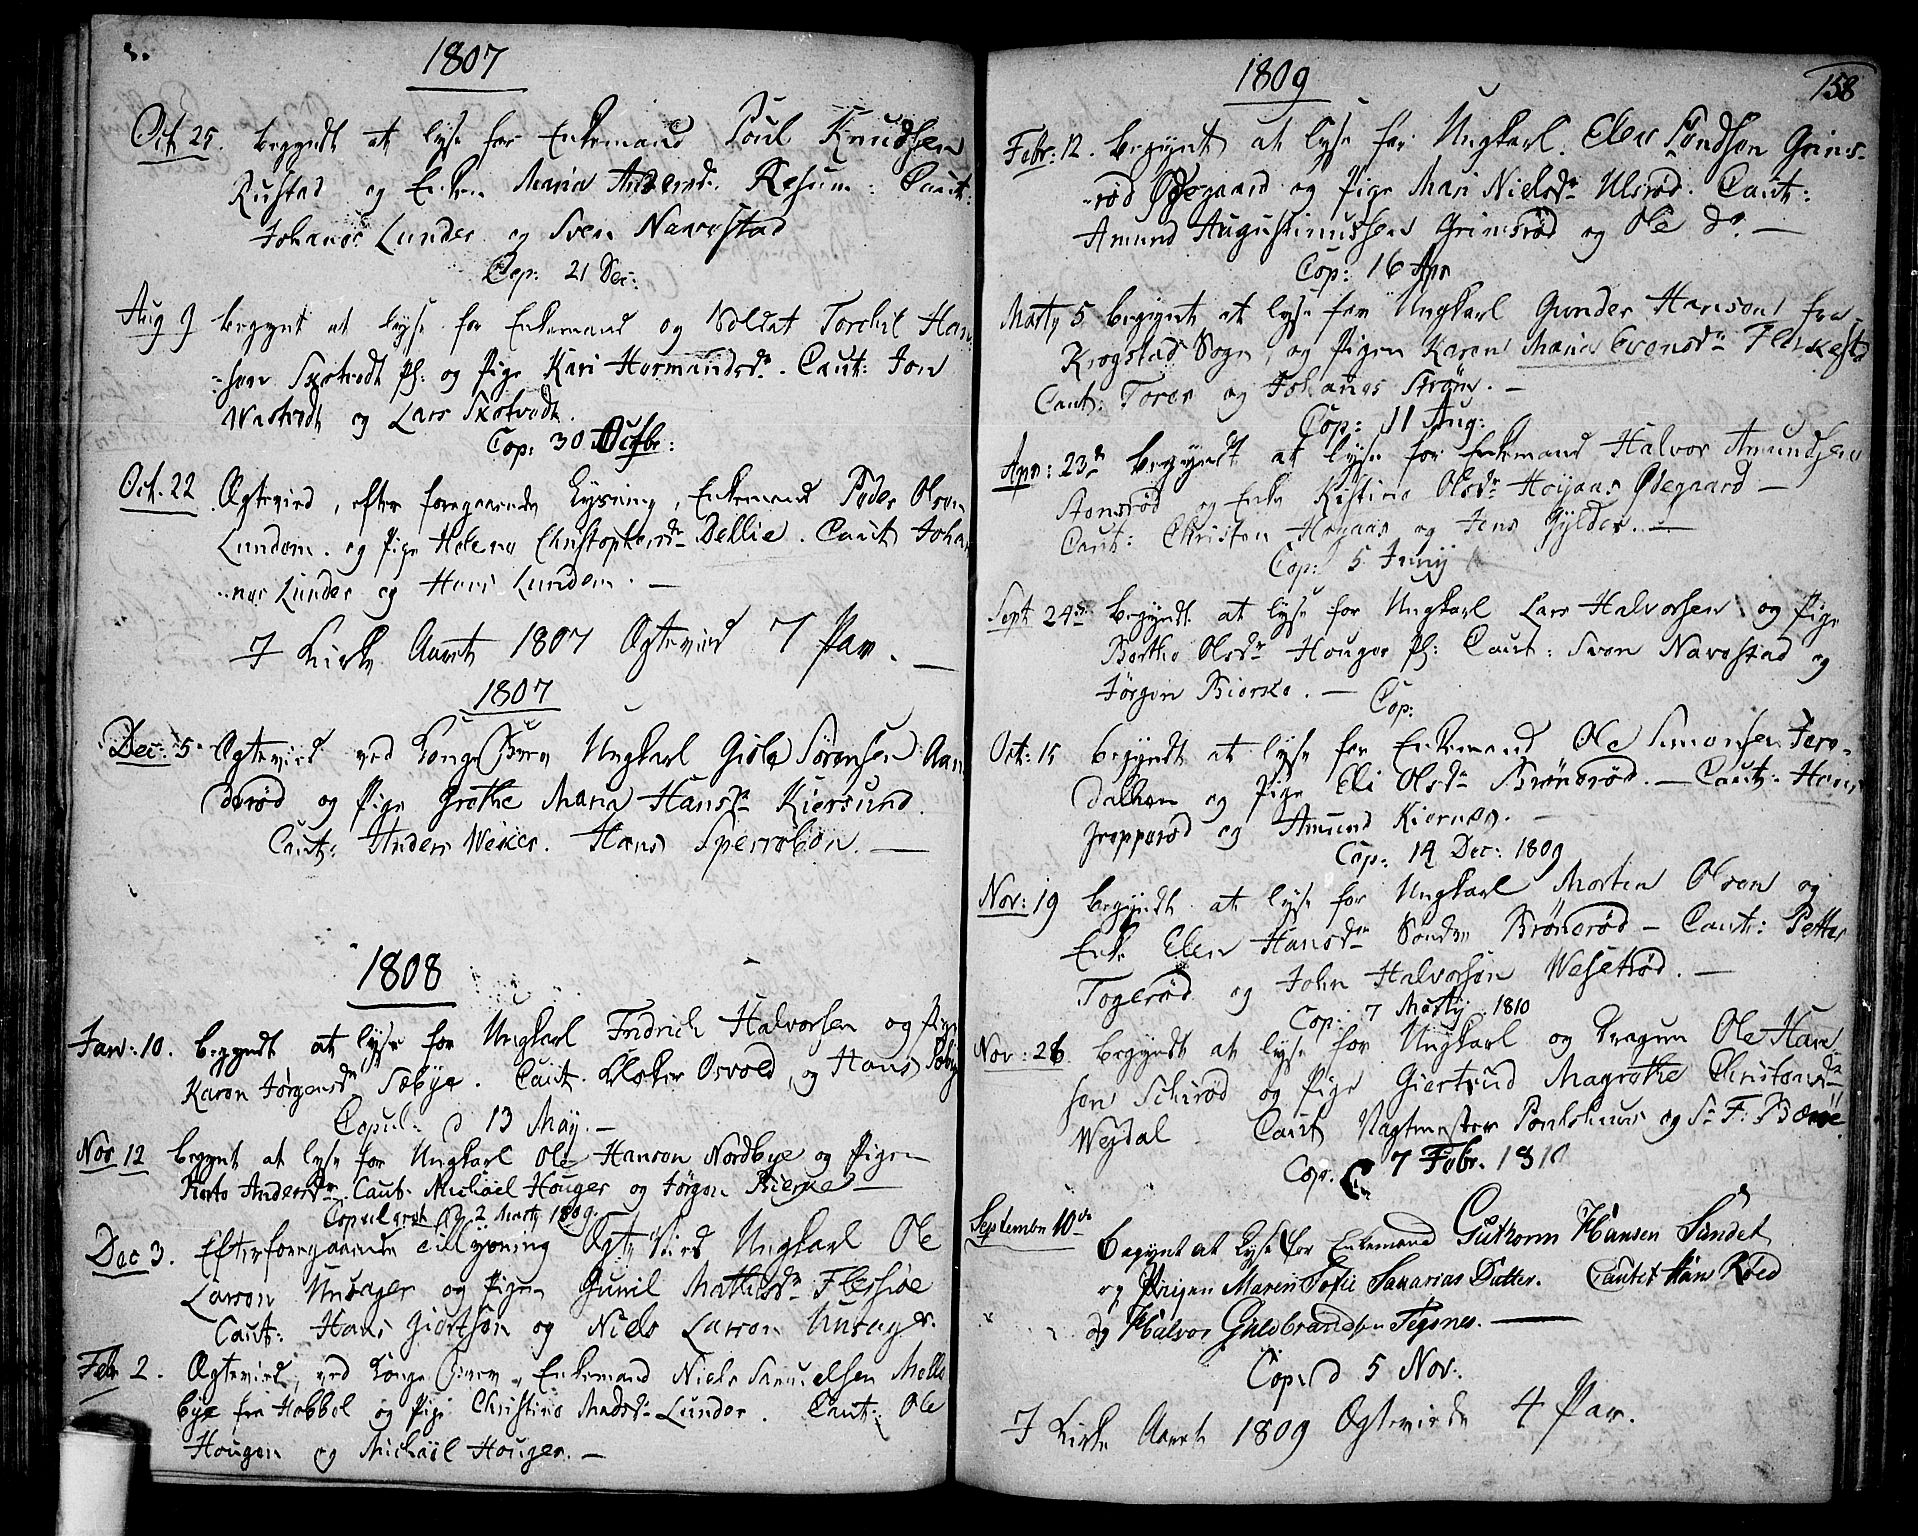 1807
Oct 25. begyndt at lyse for Enkemand Poul Knudsen
Rustad og Enken Maria Andersdr Resum: Caut:
Johanes Lunder og Sven Navestad
Cop: 21 Dec:
Aug 9 begynt at lyse for Enkemand og Soldat Torchil Han
-sen Skotvedt Pl: og Pige Kari Hermandsdr. Caut: Jon
Westvedt og Lars Skotvedt.
Cop: 30 Octbr:
Oct. 22 Ægtevied, efter foregaaende Lysning, Enkemand Peder Olsen
Lundem. og Pige Helene Christophersdr Dellie. Caut Johan
-nes Lunder og Hans Lundem. —
I Kirke Aaret 1807 Ægteviet 7 Par. —
1807
Dec: 5 Ægteviet ved Konge Brev Ungkarl Gisle Sørensen Aan
derød og Pige Grethe Maria Hansdr Kiersund.
Caut: Anders Weker. Hans Sperrebøn. —
1808
Jan: 10. begyndt at lyse for Ungkarl Fridrich Halvorsen og Pige
Karen Jørgensdr Sæbye. Caut. Osvold og Hans Sæbye
Copul: d 13 May. —
Nov 12 begynt at lyse for Ungkarl Ole Hanson Nordbye og Pigen
Andersdr. Caut. Michael Houger og Jørgen Bierke —
Copuleret d 2 Marty 1809.
Dec 3. Efter foregaaende Tillysning Ægte Vied Ungkarl Ole
Larson Unsager og Pigen Gunil Mathisdr Flessiøe
Caut: Hans Giertsøn og Niels Larson Unsager.
Feb 2. Ægteviet, ved Konge Brev, Enkemand Niels Samuelsen Melle
bye fra Hobbel og Pige Christine Madsdr Lunder. Caut: Ole
Hougen og Michail Houger. —
158
1809
Febr: 12. begynt at lyse for Ungkarl. Elen Pondsen Grims-
-rød Ødegaard og Pige Mari Nielsdr Ulsrød. Caut:
Amund Augustinussen Grimsrød og Ole do. —
Cop: 16 Apr
Marty 5 begynt at lyse for Ungkarl Gunder Hanson fra
Krogstad Sogn, og Pigen Karen Maria Evensdr
Caut: Torer og Johanes Strøm. —
Cop: 11 Aug:
Apr: 23de begyndt at lyse for Enkemand Halvor Amundsen
Stensrød og Enke Kistine Olsdr Hoijaas Ødegaard —
Caut: Christen Hogaas og Jens Gylder. —
Cop: 5 Junij
Sept 24de begyndt at lyse for Ungkarl Lars Halvorsen og Pige
Berthe Olsdr Houger Pl: Caut: Sven Navestad og
Jørgen Bierke. — Cop:
Oct: 15 begyndt at lyse for Enkemand Ole Simonsen Jero-
dalhen og Pige Eli Olsdr Brønerød. — Caut. Hans
Jrepperød og Amund Kiernes. —
Cop: 14 Dec: 1809
Nov: 19 begyndt at lyse for Ungkarl Morten Olsen og
Enke Elen Hansdr Søndre Brønerød — Caut: Petter
Togerød og John Halvorsøn Wesetrød. —
Cop: 7 Marty 1810
Nov: 26 begyndt at lyse for Ungkarl og Dragun Ole Han-
sen Schirød og Pige Giertrud Magrethe Christensdr
Wejdal. Caut Vagtmester og
Cop. 7 Febr. 1810
September 10de begynt at Lyse for Enkemand Guttorm Hansen Sundet
og Pigen Maren Sofie Sacarias Datter. Cautet Røed
og Halvor Guldbrandsen Tegsnes. —
Copd 5 Nov:
I Kirke Aaret 1809 Ægteviede 4 Par.